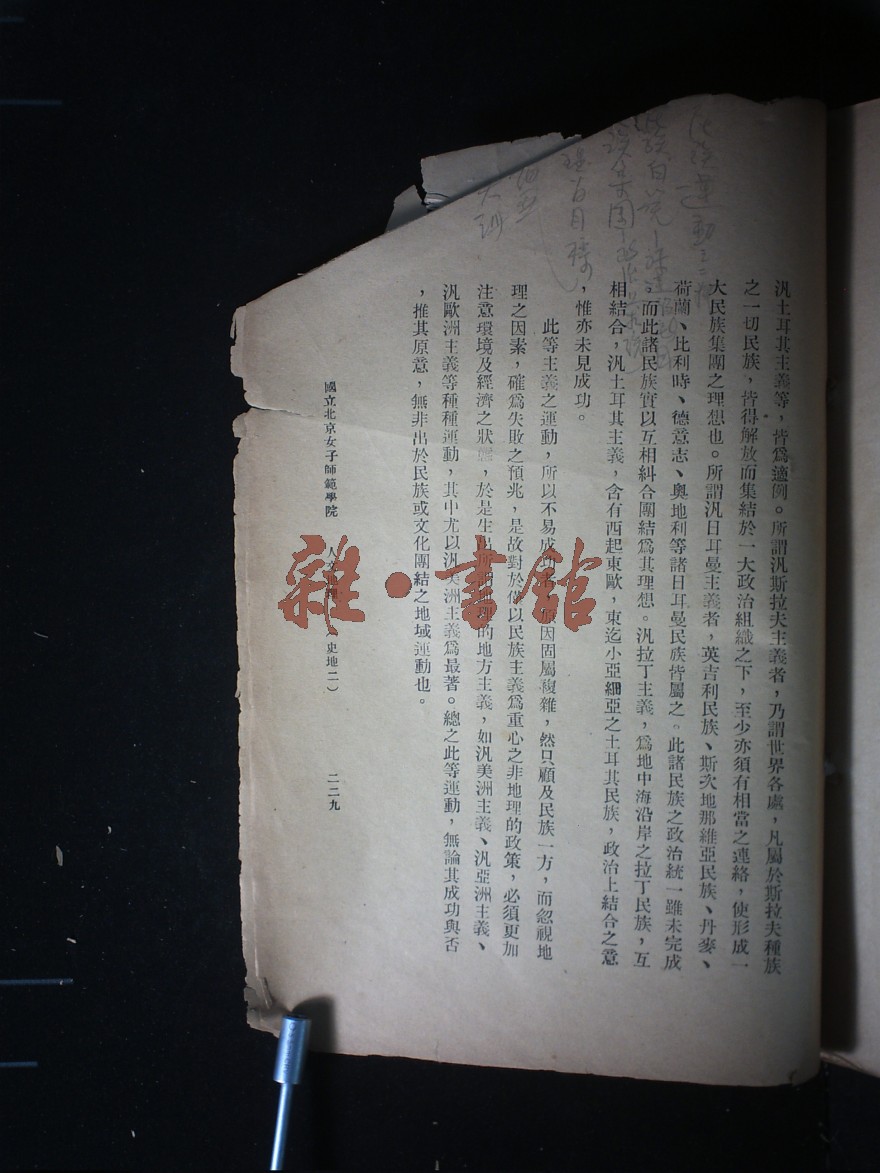 汎土耳其主義等，皆爲適例。所謂汎斯拉夫主義者，乃謂世界各處，凡屬於斯拉夫種族
之一切民族，皆得解放而集結於一大政治組織之下，至少亦須有相當之連絡，使形成一
大民族集團之理想也。所謂汎日耳曼主義者，英吉利民族、斯次地那維亞民族、丹麥、
荷蘭、比利時、德意志、奧地利等諸日耳曼民族皆屬之。此諸民族之政治統一雖未完成
。而此諸民族實以互相糾合團結爲其理想。汎拉丁主義，爲地中海沿岸之拉丁民族，互
相結合，汎土耳其主義，含有西起東歐，東迄小亞細亞之土耳其民族，政治上結合之意
，惟亦未見成功。
此等主義之運動，所以不易成功者，原因固屬複雜，然只顧及民族一方，而忽視地
理之因素，確爲失敗之預兆，是故對於僅以民族主義爲重心之非地理的政策，必須更加
注意環境及經濟之狀態，於是生出所謂地理的地方主義，如汎美洲主義、汎亞洲主義、
汎歐洲主義等種種運動，其中尤以汎美洲主義爲最著。總之此等運動，無論其成功與否
，推其原意，無非出於民族或文化團結之地域運動也。
國立北京女子師範學院 人文 史地二） 二二九
雜·書館
運動